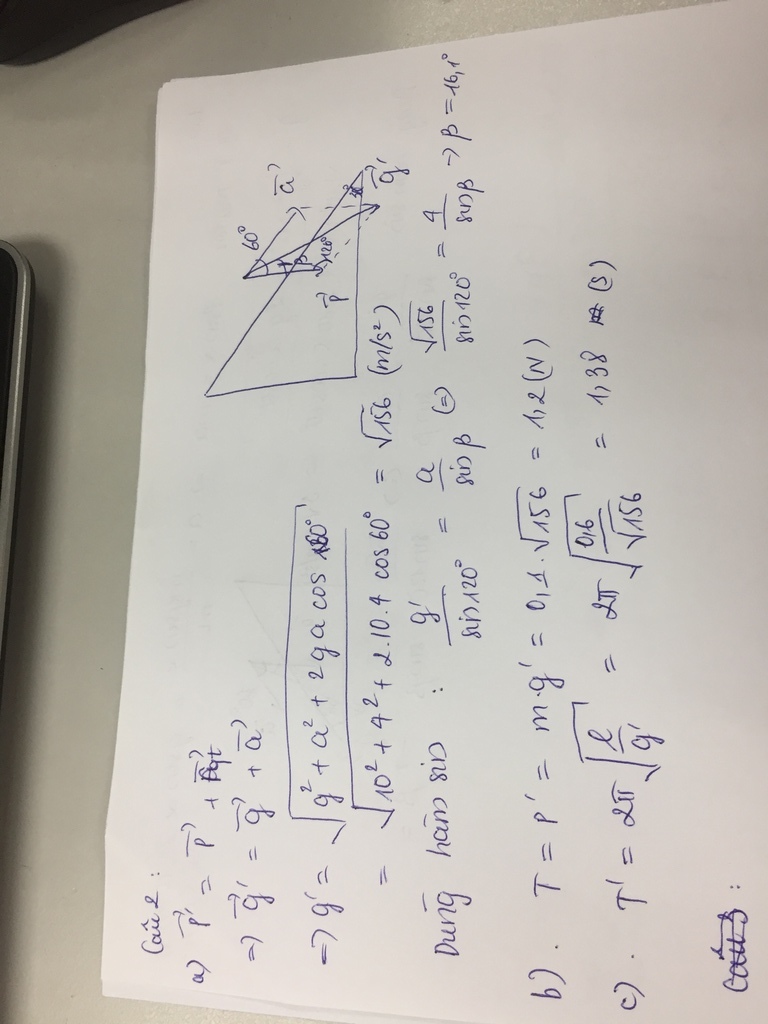 Câu 2 :
a) P' = P + Fqt
=> g' = g + a
=> g' = √(g² + a² + 2ga cos 60°)
= √(10² + 4² + 2.10.4 cos 60°) = √156 (m/s²)
Dùng hàm sin : g'/sin120° = a/sinβ (=) √156/sin120° = 4/sinβ => β = 16,1°
b) . T = P' = m.g' = 0,1.√156 = 1,2 (N)
c) . T' = 2π√(l/g') = 2π√(0,6/√156) = 1,38 (s)
Câu 3 :
60°
a
β
120°
P
g'